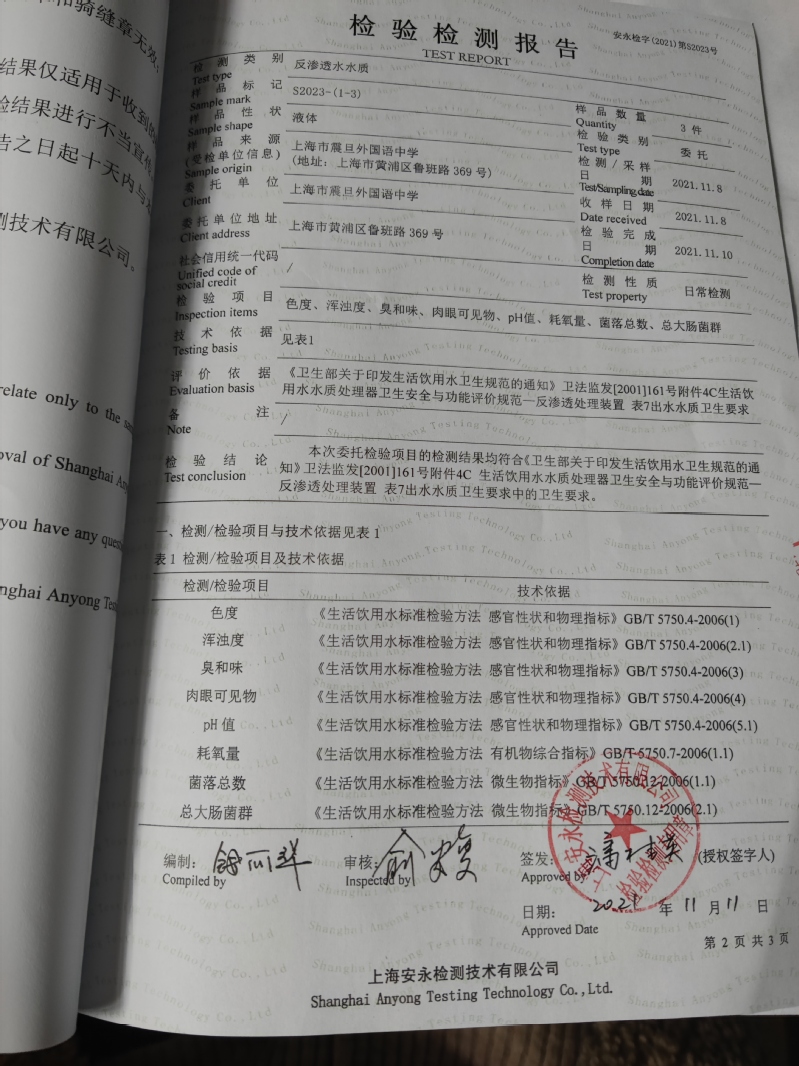 和骑缝章无效;
结果仅适用于收到的
验结果进行不当宣传
告之日起十天内与
测技术有限公司。
relate only to the
oval of Shanghai
you have any
nghai Anyong
检验检测报告
TEST REPORT
安永检字(2021)第S2023号
检测类别 反渗透水水质
Test type
样品标记 S2023-(1-3)
Sample mark
样品数量 3 件
Quantity
样品性状 液体
Sample shape
检验类别 委托
Test type
样品来源 上海市震旦外国语中学
(受检单位信息) (地址:上海市黄浦区鲁班路 369 号)
Sample origin
检测/采样
日期 2021.11.8
Test/Sampling date
委托单位 上海市震旦外国语中学
Client
收样日期 2021.11.8
Date received
委托单位地址 上海市黄浦区鲁班路 369 号
Client address
检验完成
日期 2021.11.10
Completion date
社会信用统一代码 /
Unified code of
social credit
检测性质 日常检测
Test property
检验项目 色度、浑浊度、臭和味、肉眼可见物、pH值、耗氧量、菌落总数、总大肠菌群
Inspection items
技术依据 见表1
Testing basis
评价依据 《卫生部关于印发生活饮用水卫生规范的通知》卫法监发[2001]161号附件4C生活饮
Evaluation basis 用水水质处理器卫生安全与功能评价规范—反渗透处理装置 表7出水水质卫生要求
备注 /
Note
检验结论 本次委托检验项目的检测结果均符合《卫生部关于印发生活饮用水卫生规范的通
Test conclusion 知》卫法监发[2001]161号附件4C 生活饮用水水质处理器卫生安全与功能评价规范—
反渗透处理装置 表7出水水质卫生要求中的卫生要求。
一、检测/检验项目与技术依据见表 1
表 1 检测/检验项目及技术依据
检测/检验项目 技术依据
色度 《生活饮用水标准检验方法 感官性状和物理指标》GB/T 5750.4-2006(1)
浑浊度 《生活饮用水标准检验方法 感官性状和物理指标》GB/T 5750.4-2006(2.1)
臭和味 《生活饮用水标准检验方法 感官性状和物理指标》GB/T 5750.4-2006(3)
肉眼可见物 《生活饮用水标准检验方法 感官性状和物理指标》GB/T 5750.4-2006(4)
pH 值 《生活饮用水标准检验方法 感官性状和物理指标》GB/T 5750.4-2006(5.1)
耗氧量 《生活饮用水标准检验方法 有机物综合指标》GB/T 5750.7-2006(1.1)
菌落总数 《生活饮用水标准检验方法 微生物指标》GB/T 5750.12-2006(1.1)
总大肠菌群 《生活饮用水标准检验方法 微生物指标》GB/T 5750.12-2006(2.1)
上海安永检测技术有限公司
检验检测专用章
编制: 审核: 签发: (授权签字人)
Compiled by Inspected by Approved by
日期: 2021 年 11 月 11 日
Approved Date
第 2 页 共 3 页
上海安永检测技术有限公司
Shanghai Anyong Testing Technology Co.,Ltd.